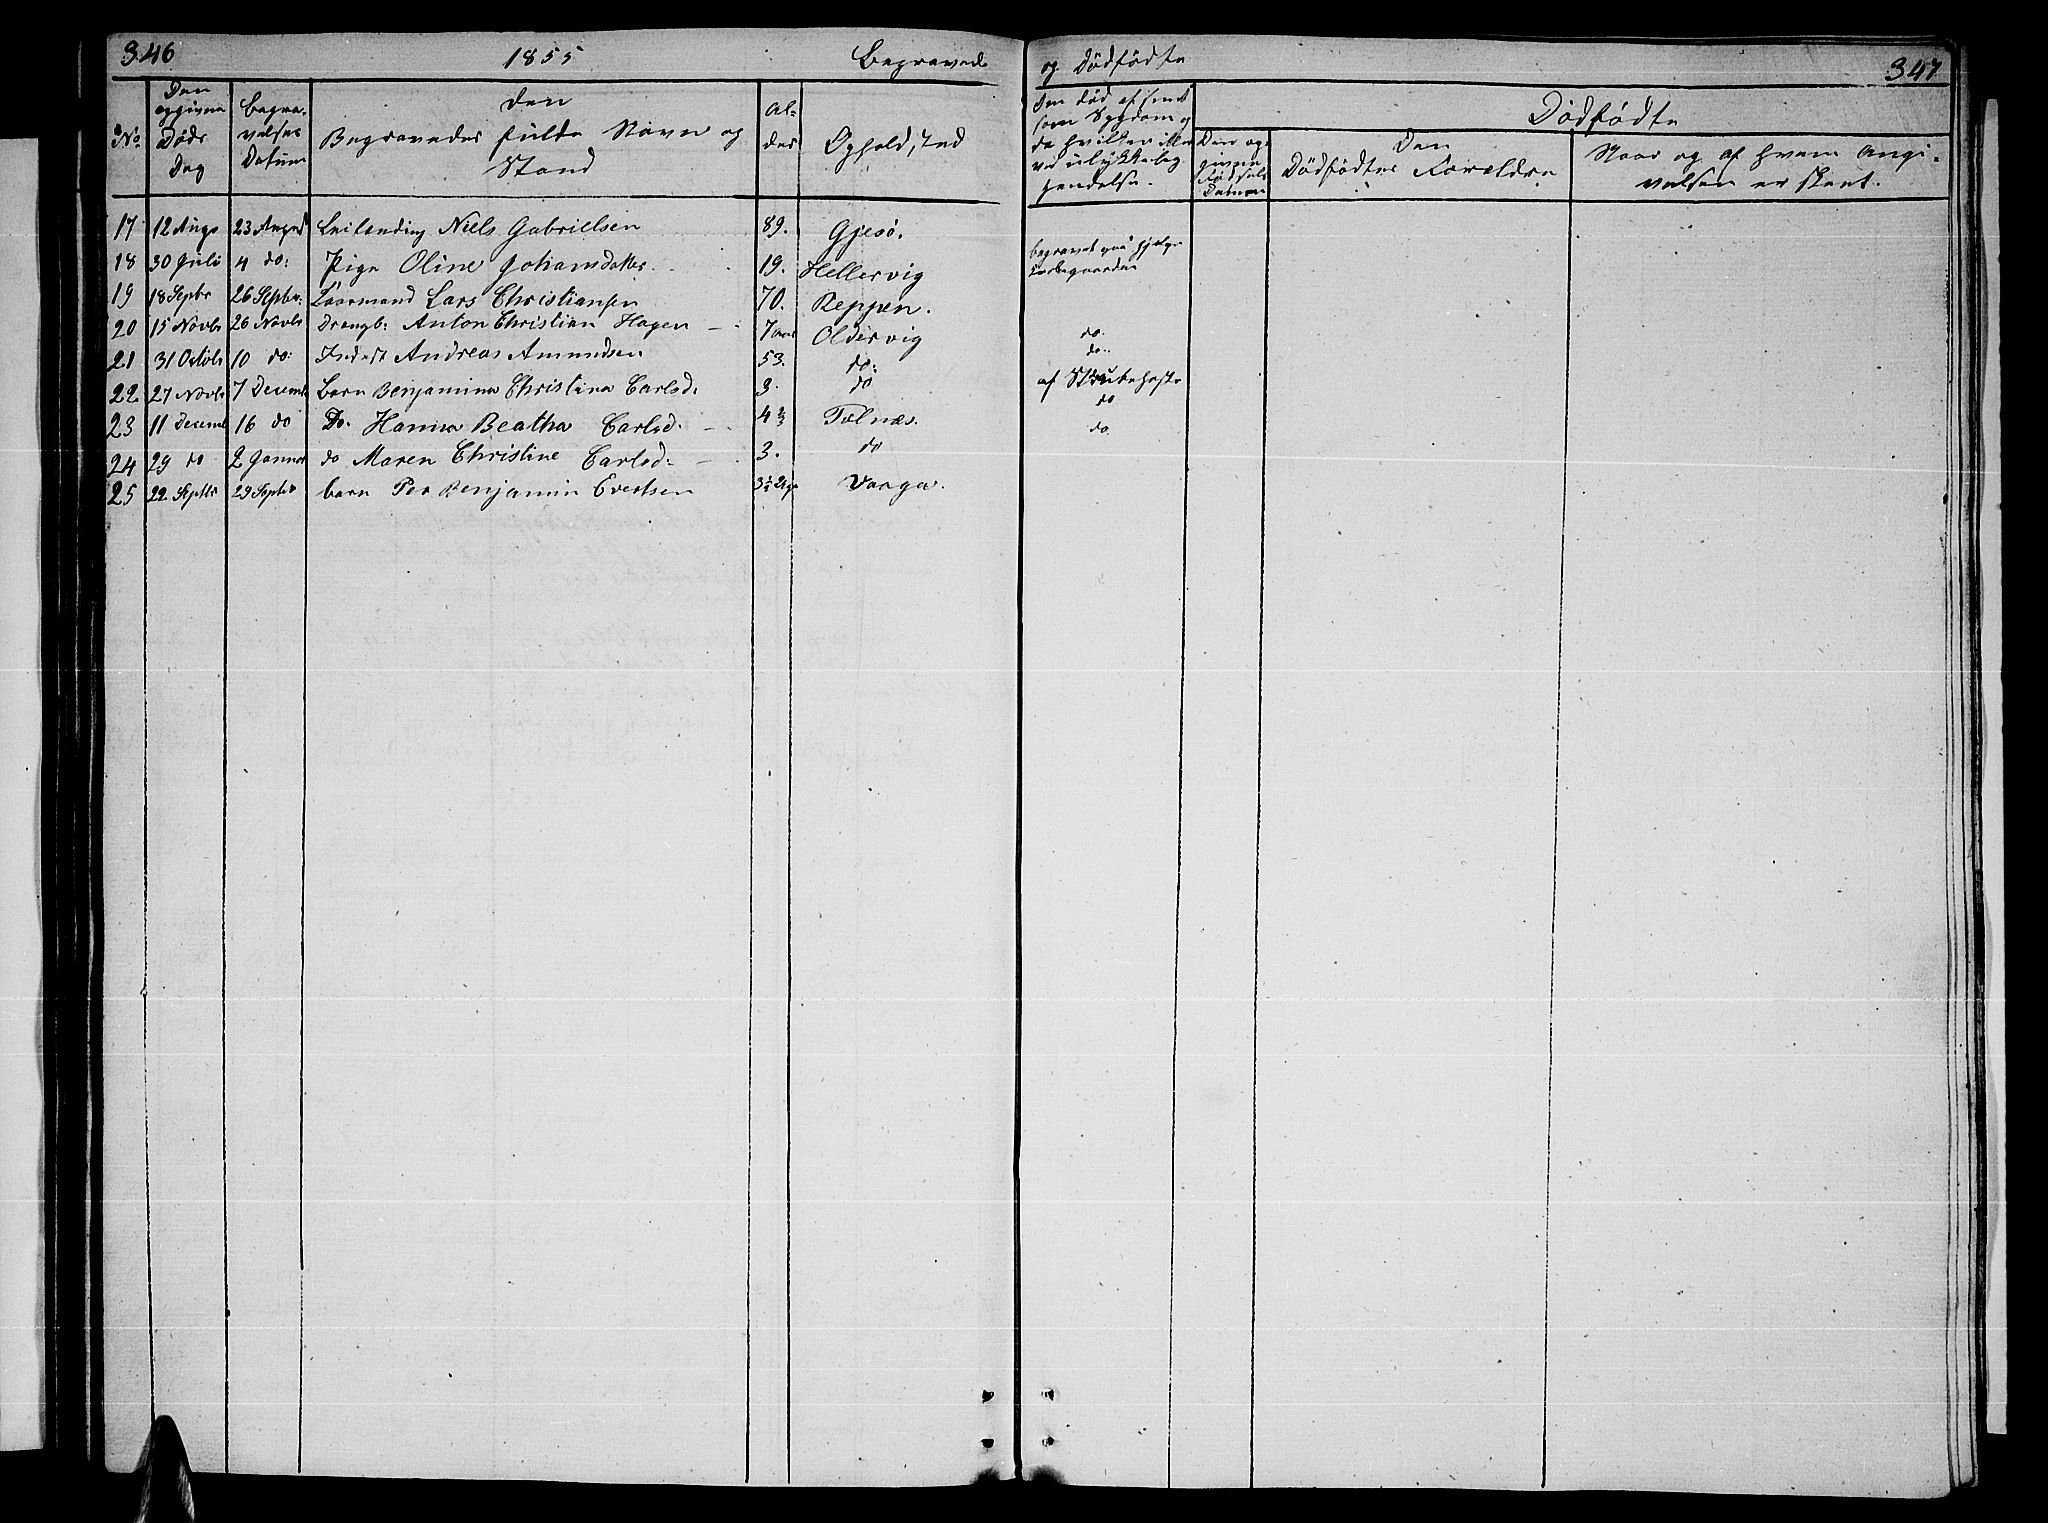 346 1855 Begravede
No. Den opgivne Døds Dag Begravelses Datum Den Begravedes fulde Navn og Stand Alder Opholdssted
17 12 Augs 23 August Leilending Niels Gabrielsen 89. Gjesø.
18 30 Juli 4 do: Pige Oline Johansdatter 19. Hellervig
19 18 Septbr 26 Septbr: Lars Christiansen 70. Reppen.
20 15 Novbr 26 Novbr Drengb: Anton Christian Hagen 7 aar Oldervig
21 31 Octobr 10 do: Inderst Andreas Amundsen 53. do:
22. 27 Novbr 7 Decemb Barn Benjamina Christina Carlsd. 3. do
23 11 Decemb 16 do Do. Hanna Beatha Carlsd. 4 Tolnæs.
24 29 do 2 Januar do Maren Christine Carlsd: 3. do
25 22 Septbr 29 Septbr barn Per Benjamin Evertsen 3½ Uge
og Dødfødte 347
Den død af smitsom Sygdom og
ved ulykkelig
hendelse.
Dødfødte
Den opgivne Fødsels Datum
Den Dødfødtes Forældre
Naar og af hvem Angivelsen er skeet.
begravet paa
do.
do.
af Strubehoste
do
do.